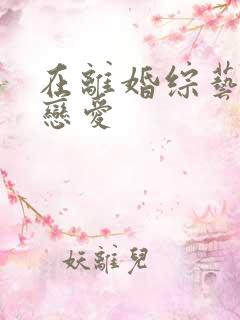 在離婚綜藝
戀愛
妖離兒